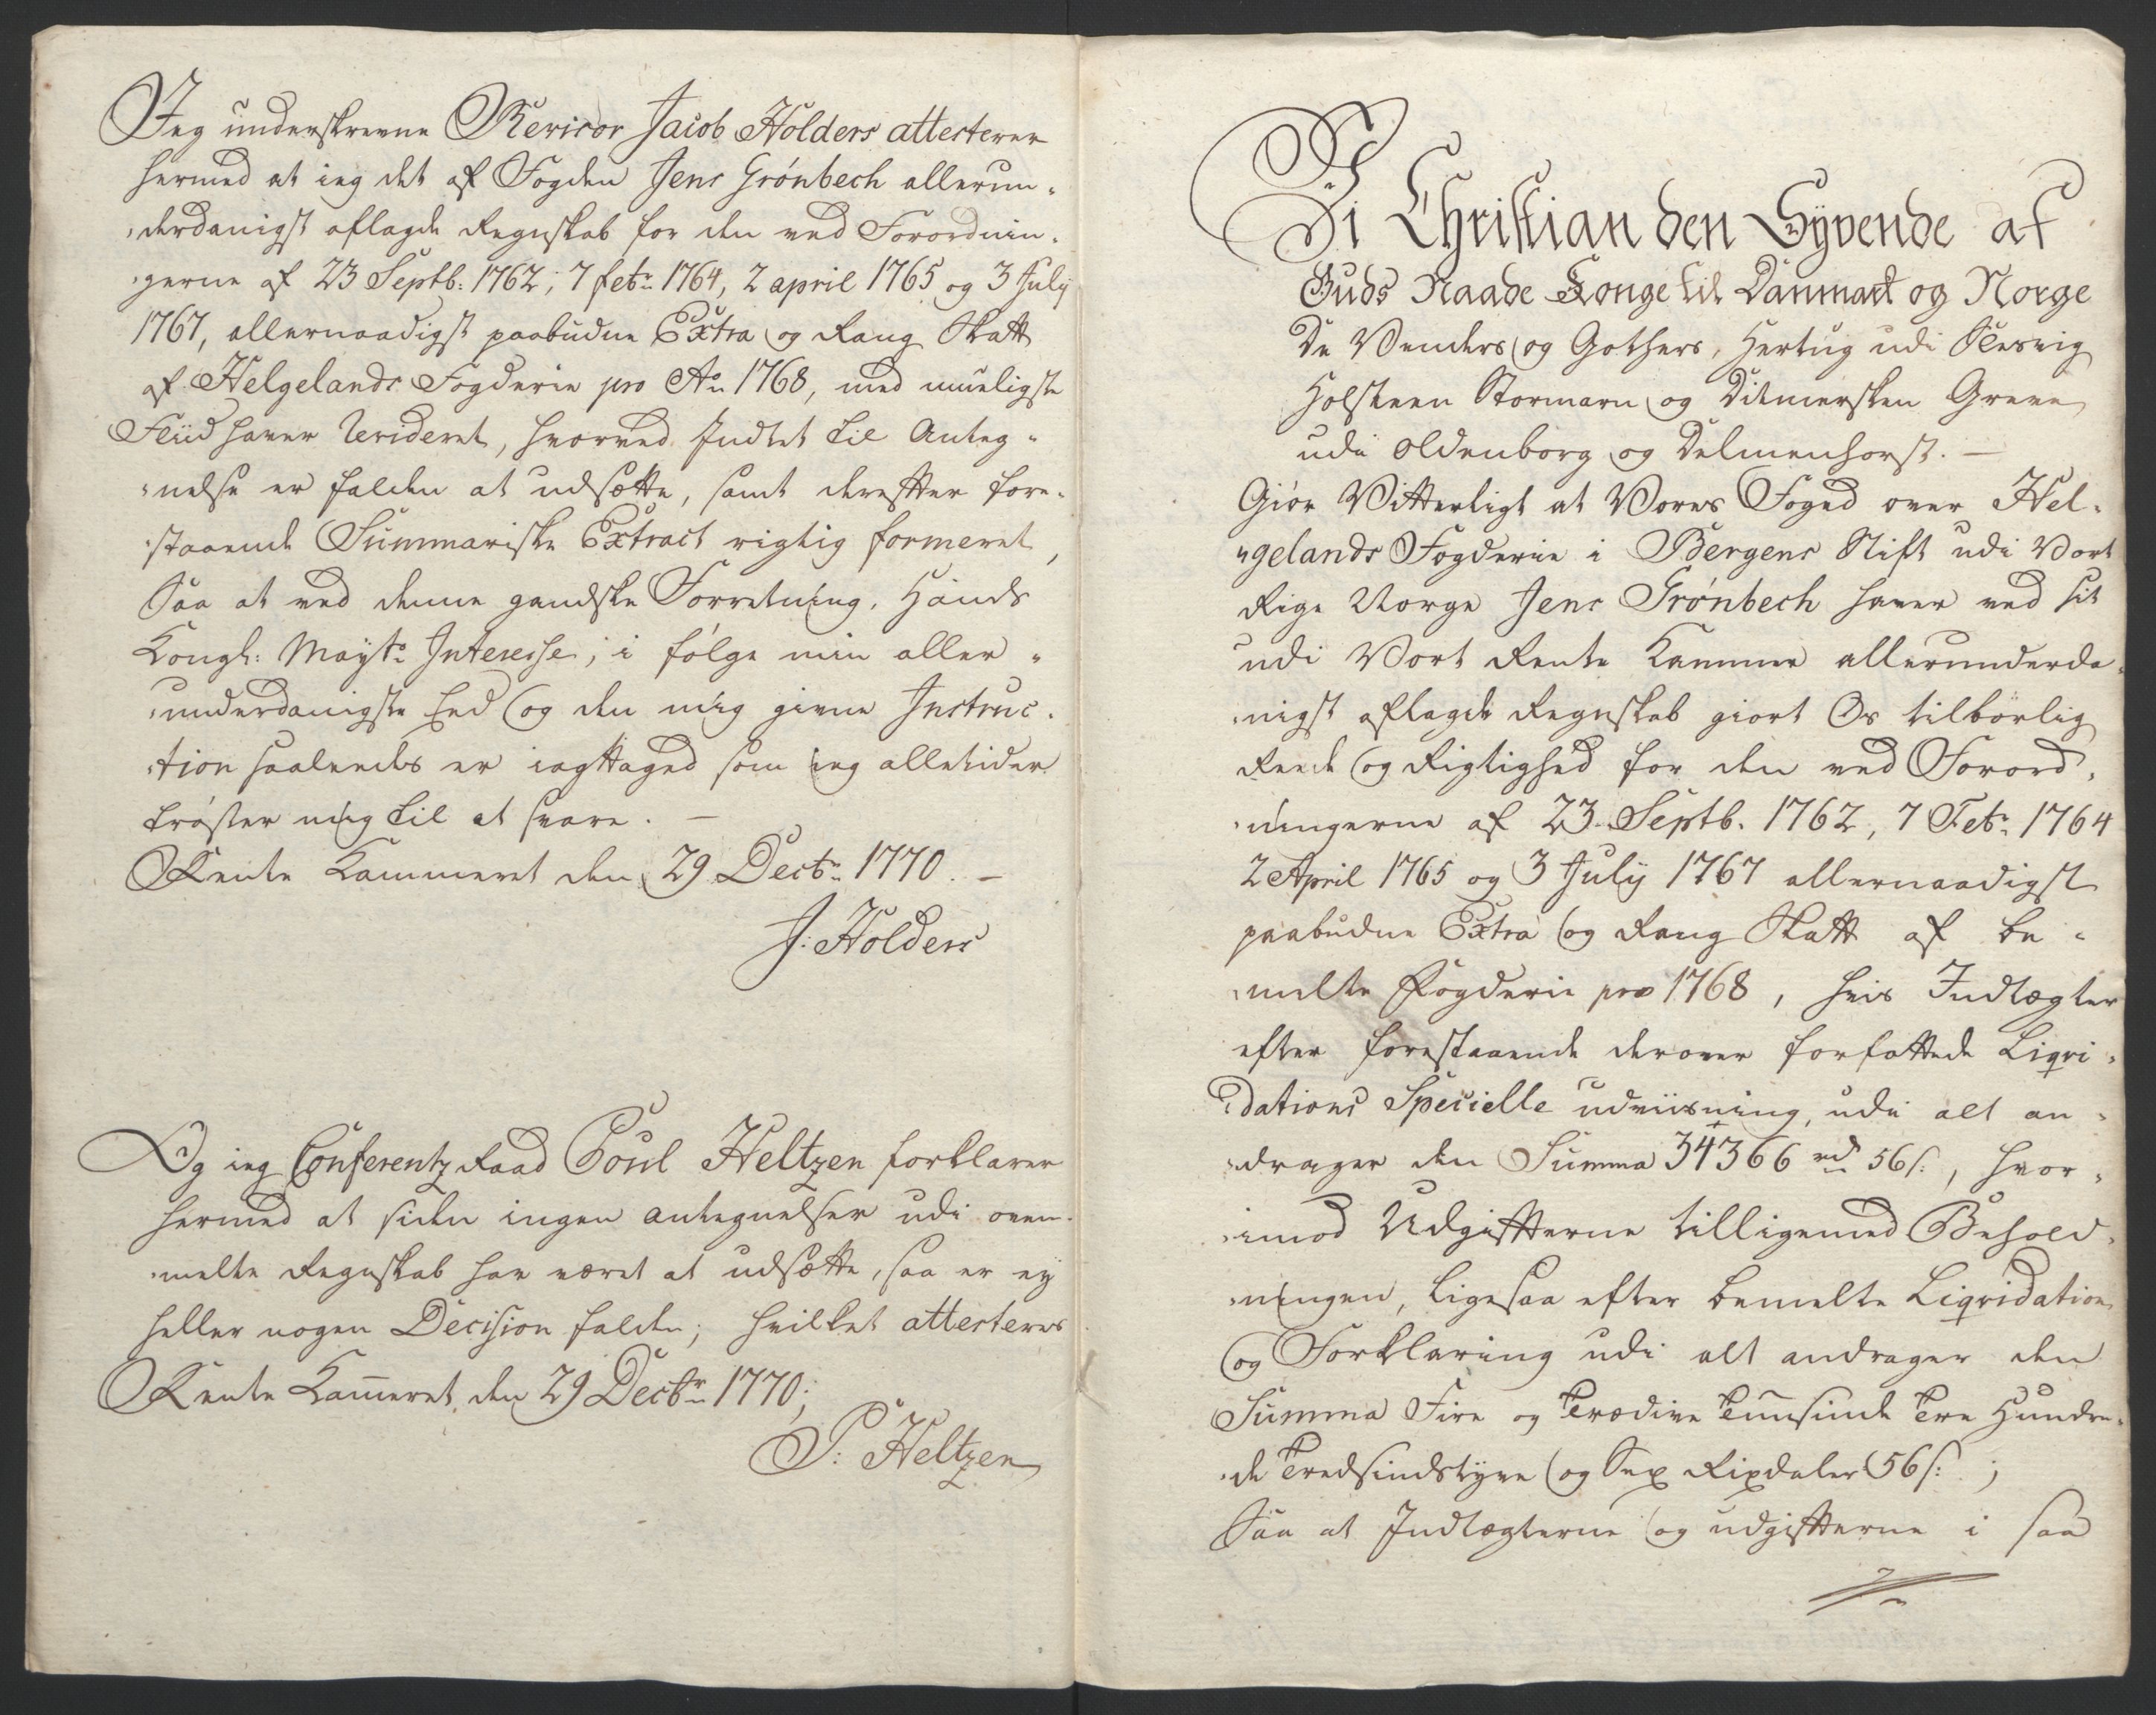 Jeg underskrevne Revisor Jacob Holders attesterer
hermed at ieg det af Fogden Jens Grönbech allerun-
-derdanigst aflagde Regnskab for den ved Forordnin-
-gerne af 23 Septb: 1762, 7 febr: 1764, 2 april 1765 og 3 July
1767, allernaadigst paabudne Extra og Rang Skatt
af Helgelands Fogderie pro Ao 1768, med mueligste
Fliid haver Revideret, hvorved Intet til Anteg-
-nelse er falden at udsætte, samt derefter fore-
-staaende Summariske Extract rigtig formeret,
Saa at ved denne gandske Forretning, Hands
Kongl: Mayts Interesse, i fölge min aller-
-underdanigste Eed og den mig givne Instruc-
-tion saaledes er iagttaged som ieg alletider
tröster mig til at svare. -
Rente Kammeret den 29 Decbr 1770. -
J: Holders
Og ieg Conferentz Raad Poul Heltzen forklarer
hermed at siden ingen antegnelser udi oven-
-melte Regnskab har været at udsætte, saa er ey
heller nogen Decision falden; hvilket attesteres
Rente Kam̅eret den 29 Decbr 1770;
P: Heltzen
Vi Christian den Syvende af
Guds Naade Konge til Danmark og Norge
De Venders og Gothers, Hertug udi Slesvig
Holsteen Stormarn og Ditmersken Greve
udi Oldenborg og Delmenhorst. -
Giör Vitterligt at Vores Foged over Hel-
-gelands Fogderie i Bergens Stift udi Vort
Rige Norge Jens Grönbech haver ved sit
udi Vort Rente Kammer allerunderda-
-nigst aflagde Regnskab giort Os tilbörlig
Reede og Rigtighed for den ved Forord-
-ningerne af 23 Septb. 1762, 7 Febr. 1764
2 April 1765 og 3 July 1767 allernaadigst
paabudne Extra og Rang Skatt af be-
-melte Fogderie pro 1768, hvis Indtægter
efter forestaaende derover forfattede Liqvi-
-dations Specielle udviisning, udi alt an-
-drager den Summa 34366 rd 56 s:, hvor-
-imod Udgifterne tilligemed Behold-
-ningen, ligesaa efter bemelte Liqvidation
og Forklaring udi alt andrager den
Summa Fire og Tredive Tusinde Tre Hundre-
-de Tredsindstyve og Sex Rixdaler 56 s: ;
Saa at Indtægterne og udgifterne i saa